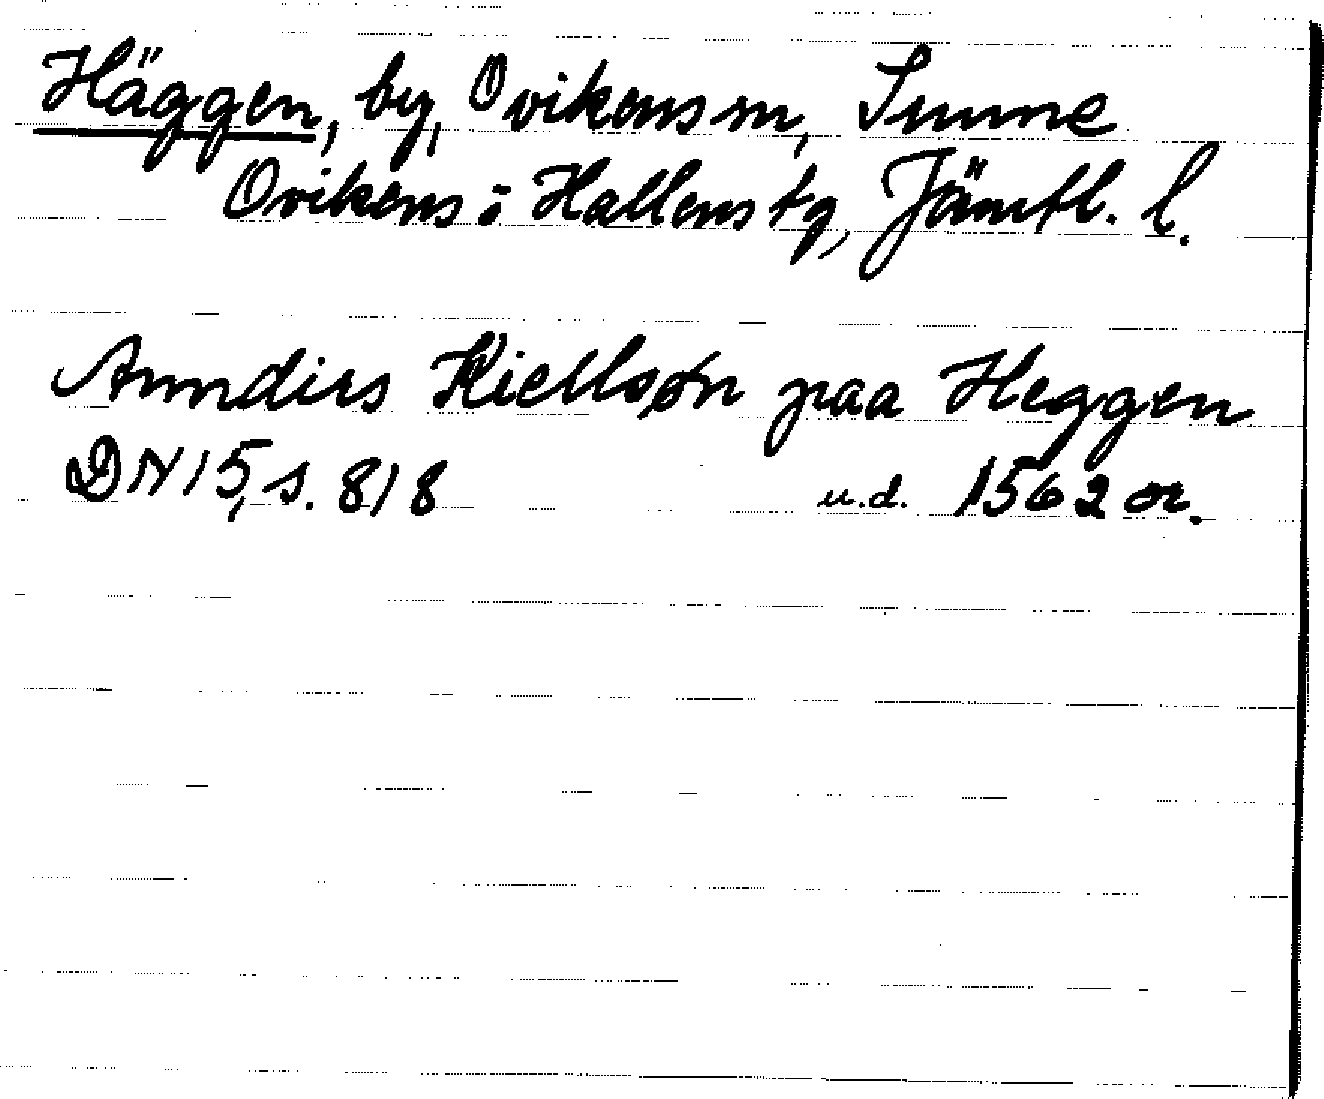 Häggen, by, Ovikens sn, Sunne
Ovikens o Hallens tg, Jämtl. l.
Anndirs Kiellsøn paa Heggen
DN 15, s. 818 u.d. 1562 or.